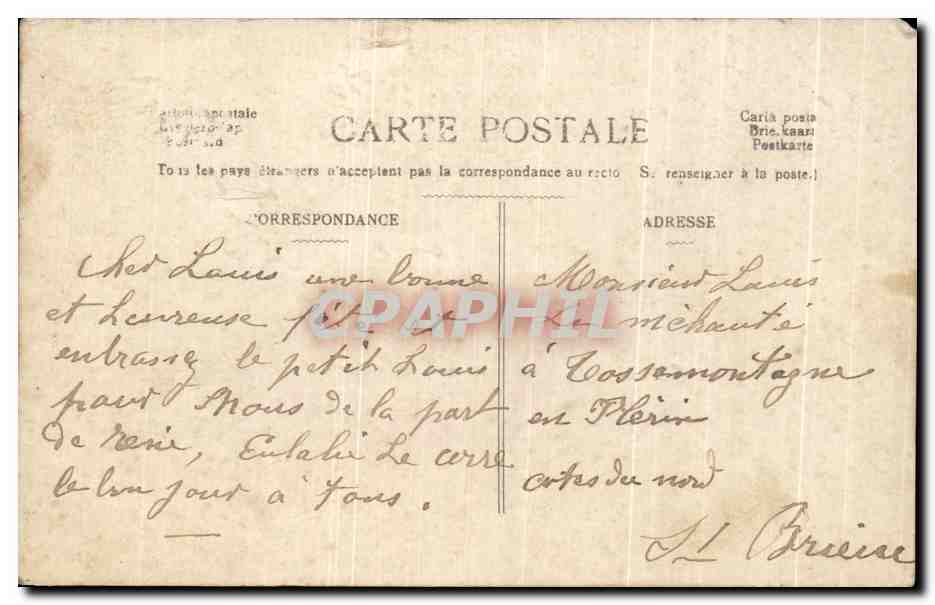 CARTE POSTALE
Carta posta
Briefkaart
Postkarte
Tous les pays étrangers n'acceptent pas la correspondance au recto Se renseigner à la poste.)
CORRESPONDANCE
ADRESSE
Cher Louis une bonne
et heureuse fête et
enbrassez le petit Louis
pour Nous de la part
de Eulalie Le corre
le bon jour à tous.
Monsieur Louis
Le méchauté
à Tossemontagne
en Plérin
cotes du nord
St Brieuc
CPAPHIL